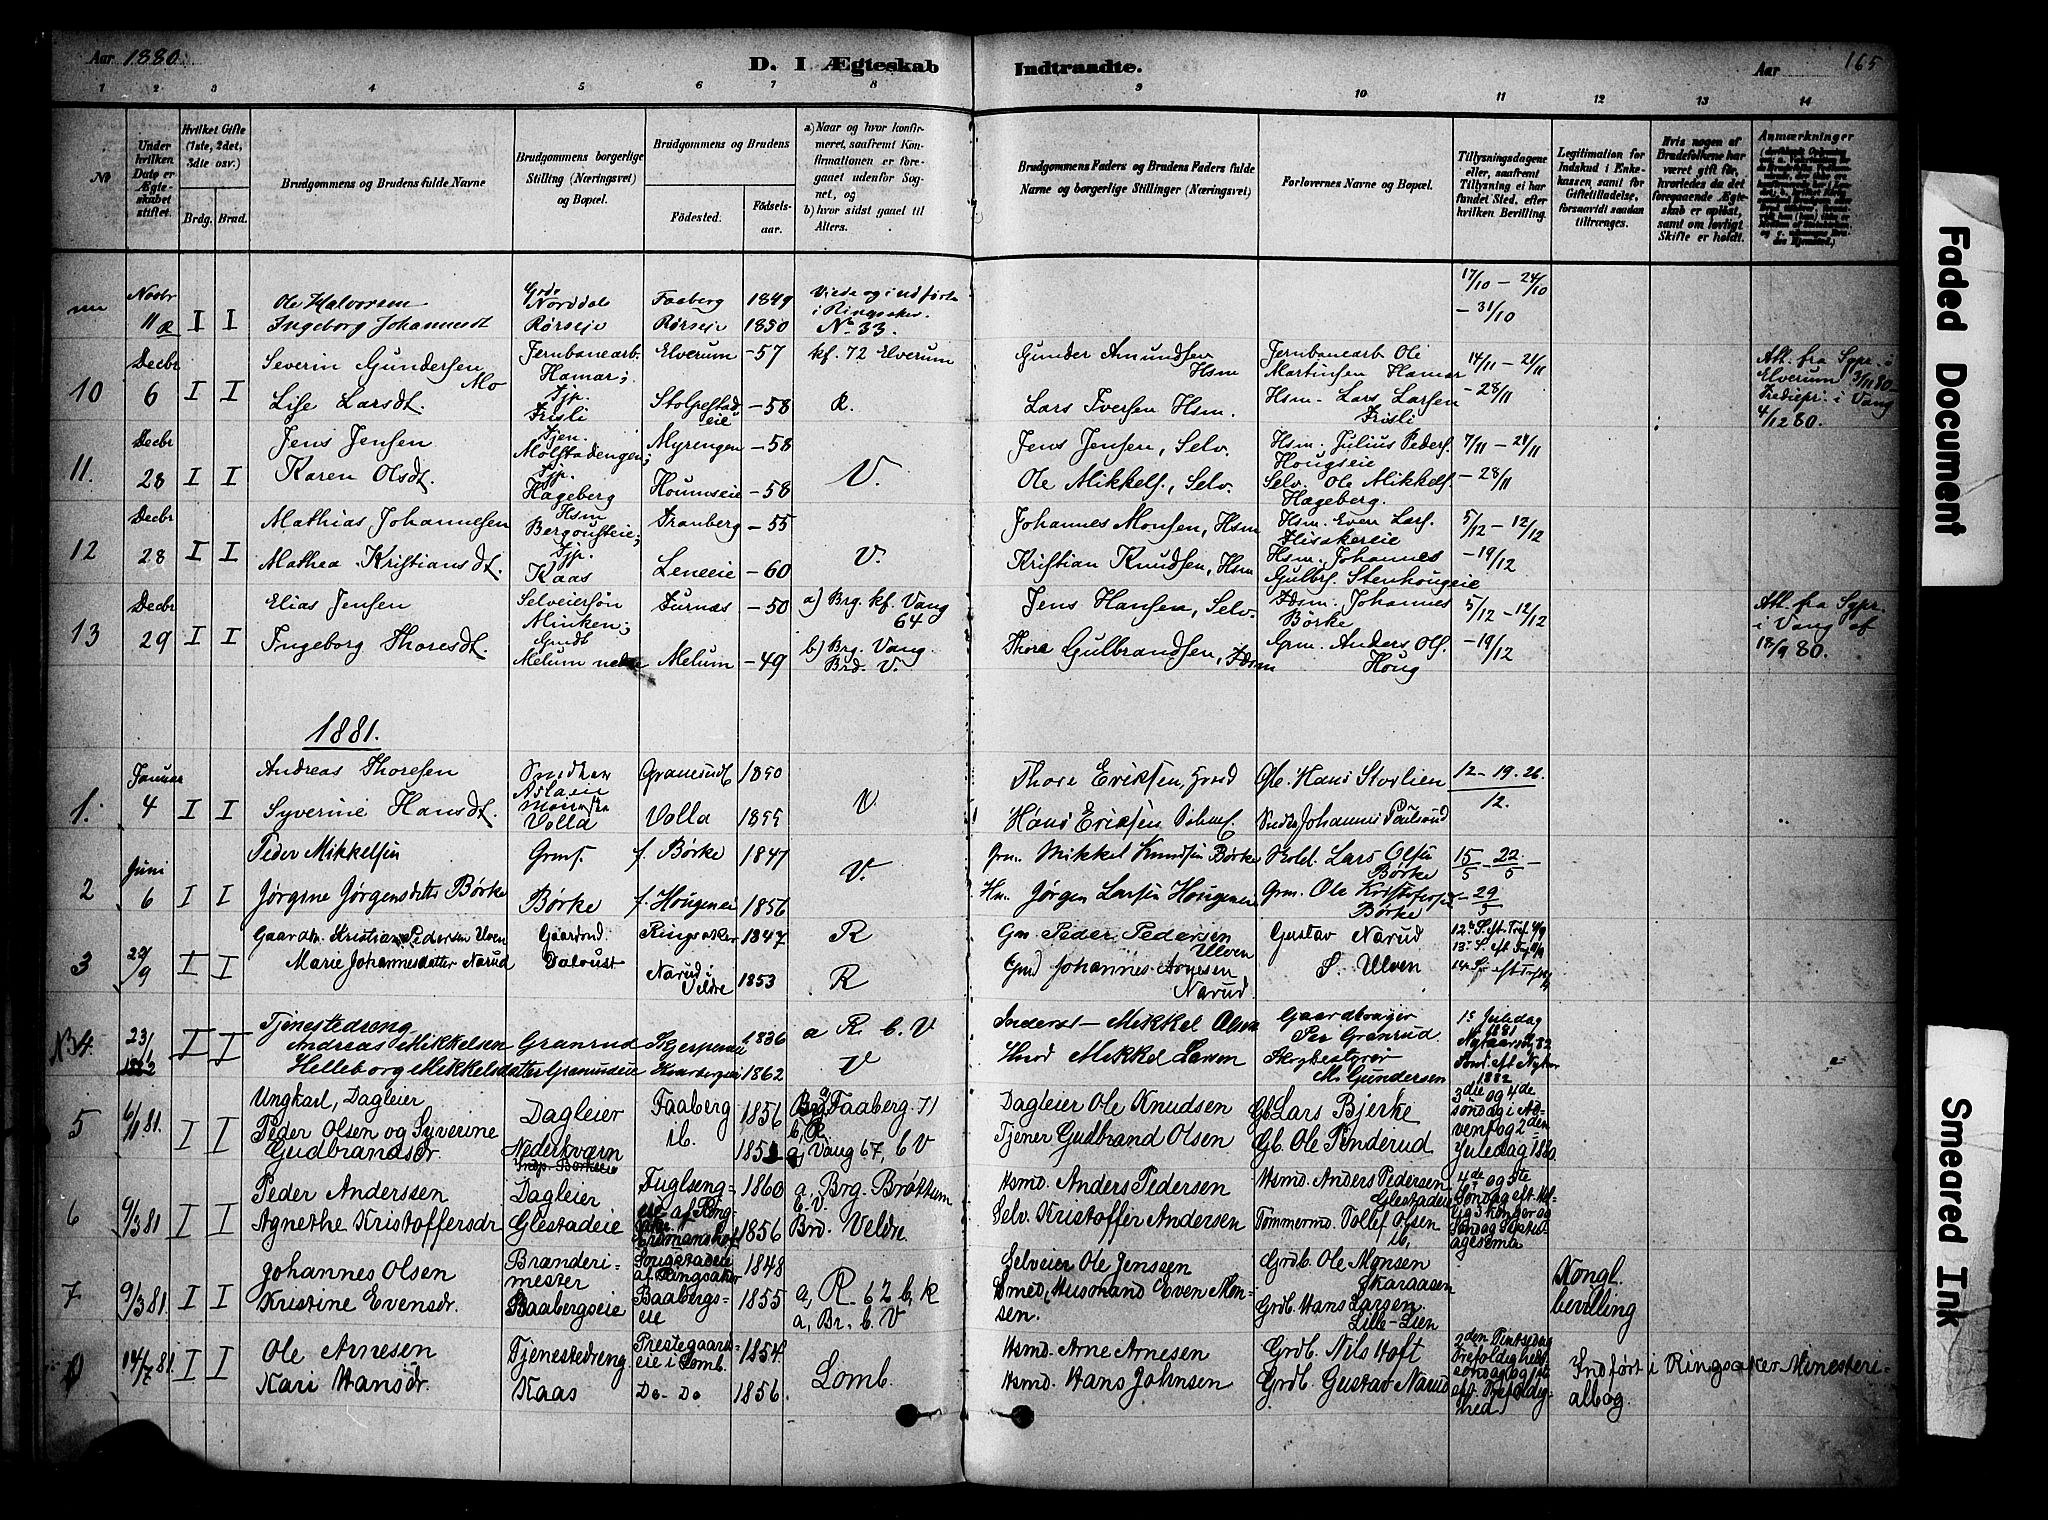 Aar 1880.
D. I Ægteskab Indtraadte.
Aar 165
1 2 3 4 5 6 7 8 9 10 11 12 13 14
No
Under hvilken Dato er Ægteskabet stiftet.
Hvilket Gifte (1ste, 2det, 3die osv.)
Brdg. Brud.
Brudgommens og Brudens fulde Navne
Brudgommens borgerlige Stilling (Næringsvei) og Bopæl.
Brudgommens og Brudens
Födested. Födselsaar.
a) Naar og hvor konfirmeret, saafremt Konfirmationen er foregaaet udenför Sognet, og
b) hvor sidst gaaet til Alters.
Brudgommens Faders og Brudens Faders fulde Navne og borgerlige Stillinger (Næringsvei)
Forlovernes Navne og Bopæl.
Tillysningsdagene eller, saafremt Tillysning ei har fundet Sted, efter hvilken Bevilling.
Legitimation for Indskud i Enkekassen samt for Giftetilladelse, forsaavidt saadan tiltrænges.
Hvis nogen af Brudefolkene har været gift för, hvorledes da det foregaaende Ægteskab er oplöst, samt om lovligt Skifte er holdt.
Anmærkninger
Novbr 11 I I
Ole Halvorsen Norddal Faaberg 1849 Viede og indførte i Ringsaker No 33. 17/10 - 24/10
Ingeborg Johannesdt Rørseie Rørseie 1850 - 31/10
10 Decbr 6 I I
Severin Gundersen Mo Jernbanearb. Hamar; Elverum - 57 kf. 72 Elverum Gunder Amundsen Hsm Jernbanearb Ole Martinsen Hamar 14/11 - 21/11 Att. fra Sypr. i Elverum 3/11 80
Lise Larsdt. Tjp. Frisli Stolpestadeie - 58 R. Lars Iversen Hsm. Hsm. Lars Larsen Frisli - 28/11 i Vang 4/12 80.
11. Decbr 28 I I
Jens Jensen Tjen. Molstadengen; Myrengen - 58 V. Jens Jensen, Selv. Hsm. Julius Peders. Hougseie 7/11 - 21/11
Karen Olsdt. Tjp. Hageberg Houmseie - 58 Ole Mikkels., Selv. Selv. Ole Mikkels. Hageberg. - 28/11
12 Decbr 28 I I
Mathias Johannesen Hsm Bergousteie; Tranberg - 55 V. Johannes Monsen, Hsm Hsm. Even Lars. Flisakereie 5/12 - 12/12
Mathea Kristiansdt. Tjp. Kaas Leneeie - 60 Kristian Knudsen, Hsm Hsm. Johannes Gulbrs. Stenhougeie - 19/12
13 Decbr 29 I I
Elias Jensen Selveiersøn Minken; Furnæs - 50 a) Brg. kf. Vang 64 Jens Hansen, Selv. Johannes Børke 5/12 - 12/12 Att. fra Sypr. i Vang af 18/9 80.
Ingeborg Thoresdt. Melum Melum - 49 b) Brg. Vang. Brd. V. Thore Gulbrandsen, Grm. Anders Ols. Houg - 19/12
1881.
1. Januar 4 I I
Andreas Thoresen Granerudb 1850 V. Thore Eriksen, Hans Storlien 12 - 19 - 26
Syverine Hansdt. Volla Volla 1855 Hans Eriksen Johannes Paulsrud 12.
2 Juni 6 I I
Peder Mikkelsen Grms. f. Børke 1847 V. Grm. Mikkel Knudsen Børke Lars Olsen Børke 15/5 - 22/5 -
Jørgine Jørgensdatter Børke Børke f. Hougenei 1856 Hm. Jørgen Larsen Hougenei Grm. Ole Kristoffersen Børke - 29/5
3 29/9 I I
Gaardm. Kristian Pedersen Ulven Gaardmd. Ringsaker 1847 R Gm. Peder Pedersen Ulven Gustav Narud
Marie Johannesdatter Narud Daloust Narud i Veldre 1853 R Gmd Johannes Arnesen Narud. S. Ulven
N 34. 23/1 1882 I I
Tjenestedreng Andreas Mikkelsen Granrud Skjerpenei 1836 a R. b. V Inderst - Mikkel Olsen Gaardbruger Per Granrud 1ste Juledag 1881 Nytaarsdg 82
Helleborg Mikkelsdatter Granrudeie Kvarbergeie 1862 V Hmd Mikkel Larsen Skrybestyrer M. Gundersen Sønd. eft Nytaar 1882
5 6/1 81. I I
Ungkarl, Dagleier Peder Olsen og Syverine Gudbrandsdr. Dagleier Nederkværn Faaberg ib. 1856 Brg Faaberg 71 b, R Dagleier Ole Knudsen Gb. Lars Bjerke 3die og 4de søndag i Advent og 2den Juledag 1880.
a, Vang 67, b V Tjener Gudbrand Olsen Gb. Ole Pinderud
6 9/3 81 I I
Peder Anderssen Dagleier Fuglsengeie af Ringsaker 1860 a, Brg. Brøttum b, V. Hsmd. Anders Pedersen Hsmd. Anders Pedersen Glestadeie
Agnethe Kristoffersdr Glestadeie 1856 Brd. Veldre. Selv. Kristoffer Andersen Tømmermd. Tollef Olsen ib.
7 9/3 81. I I
Johannes Olsen Brænderimester af Ringsaker 1848 a, R. 62 b, R Selveier Ole Jenssen Grdb. Ole Monsen Skaraasen Kongl. bevilling
Kristine Evensdr. Baabergseie Baabergseie 1855 a, Br. b. V Smed, Husmand Even Monsen. Grdb. Hans Larsen Lille-Lien
14/7 81. I I
Ole Arnesen Tjenestedreng Prestegaardseie i Lomb. 1854. Lomb. Hsmd. Arne Arnesen Grdb. Nils Hoft 2den Pintsedag Trefoldighedssøndag og 1ste eft. Trefoldighed Indført i Ringsaker Ministerialbog.
Kari Hansdr. Kaas Do - Do 1856. Hsmd. Hans Johnsen Grdb. Gustav Narud
Faded Document
Smeared Ink